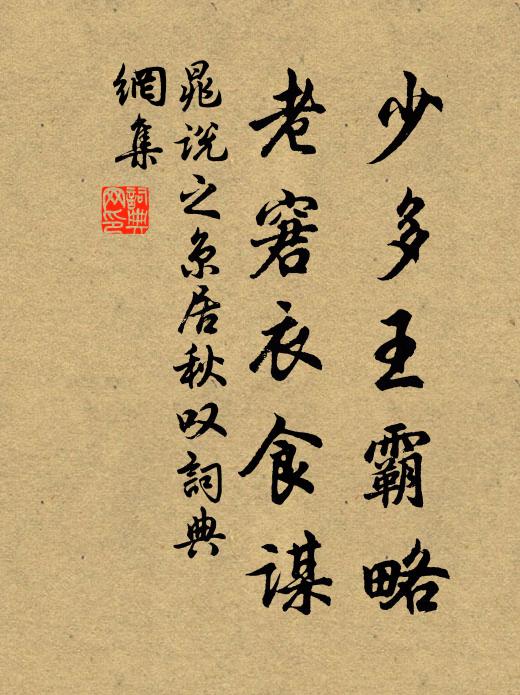 少多王霸略
老窘衣食谋
晁说之京居秋叹词典
网集
词典网印